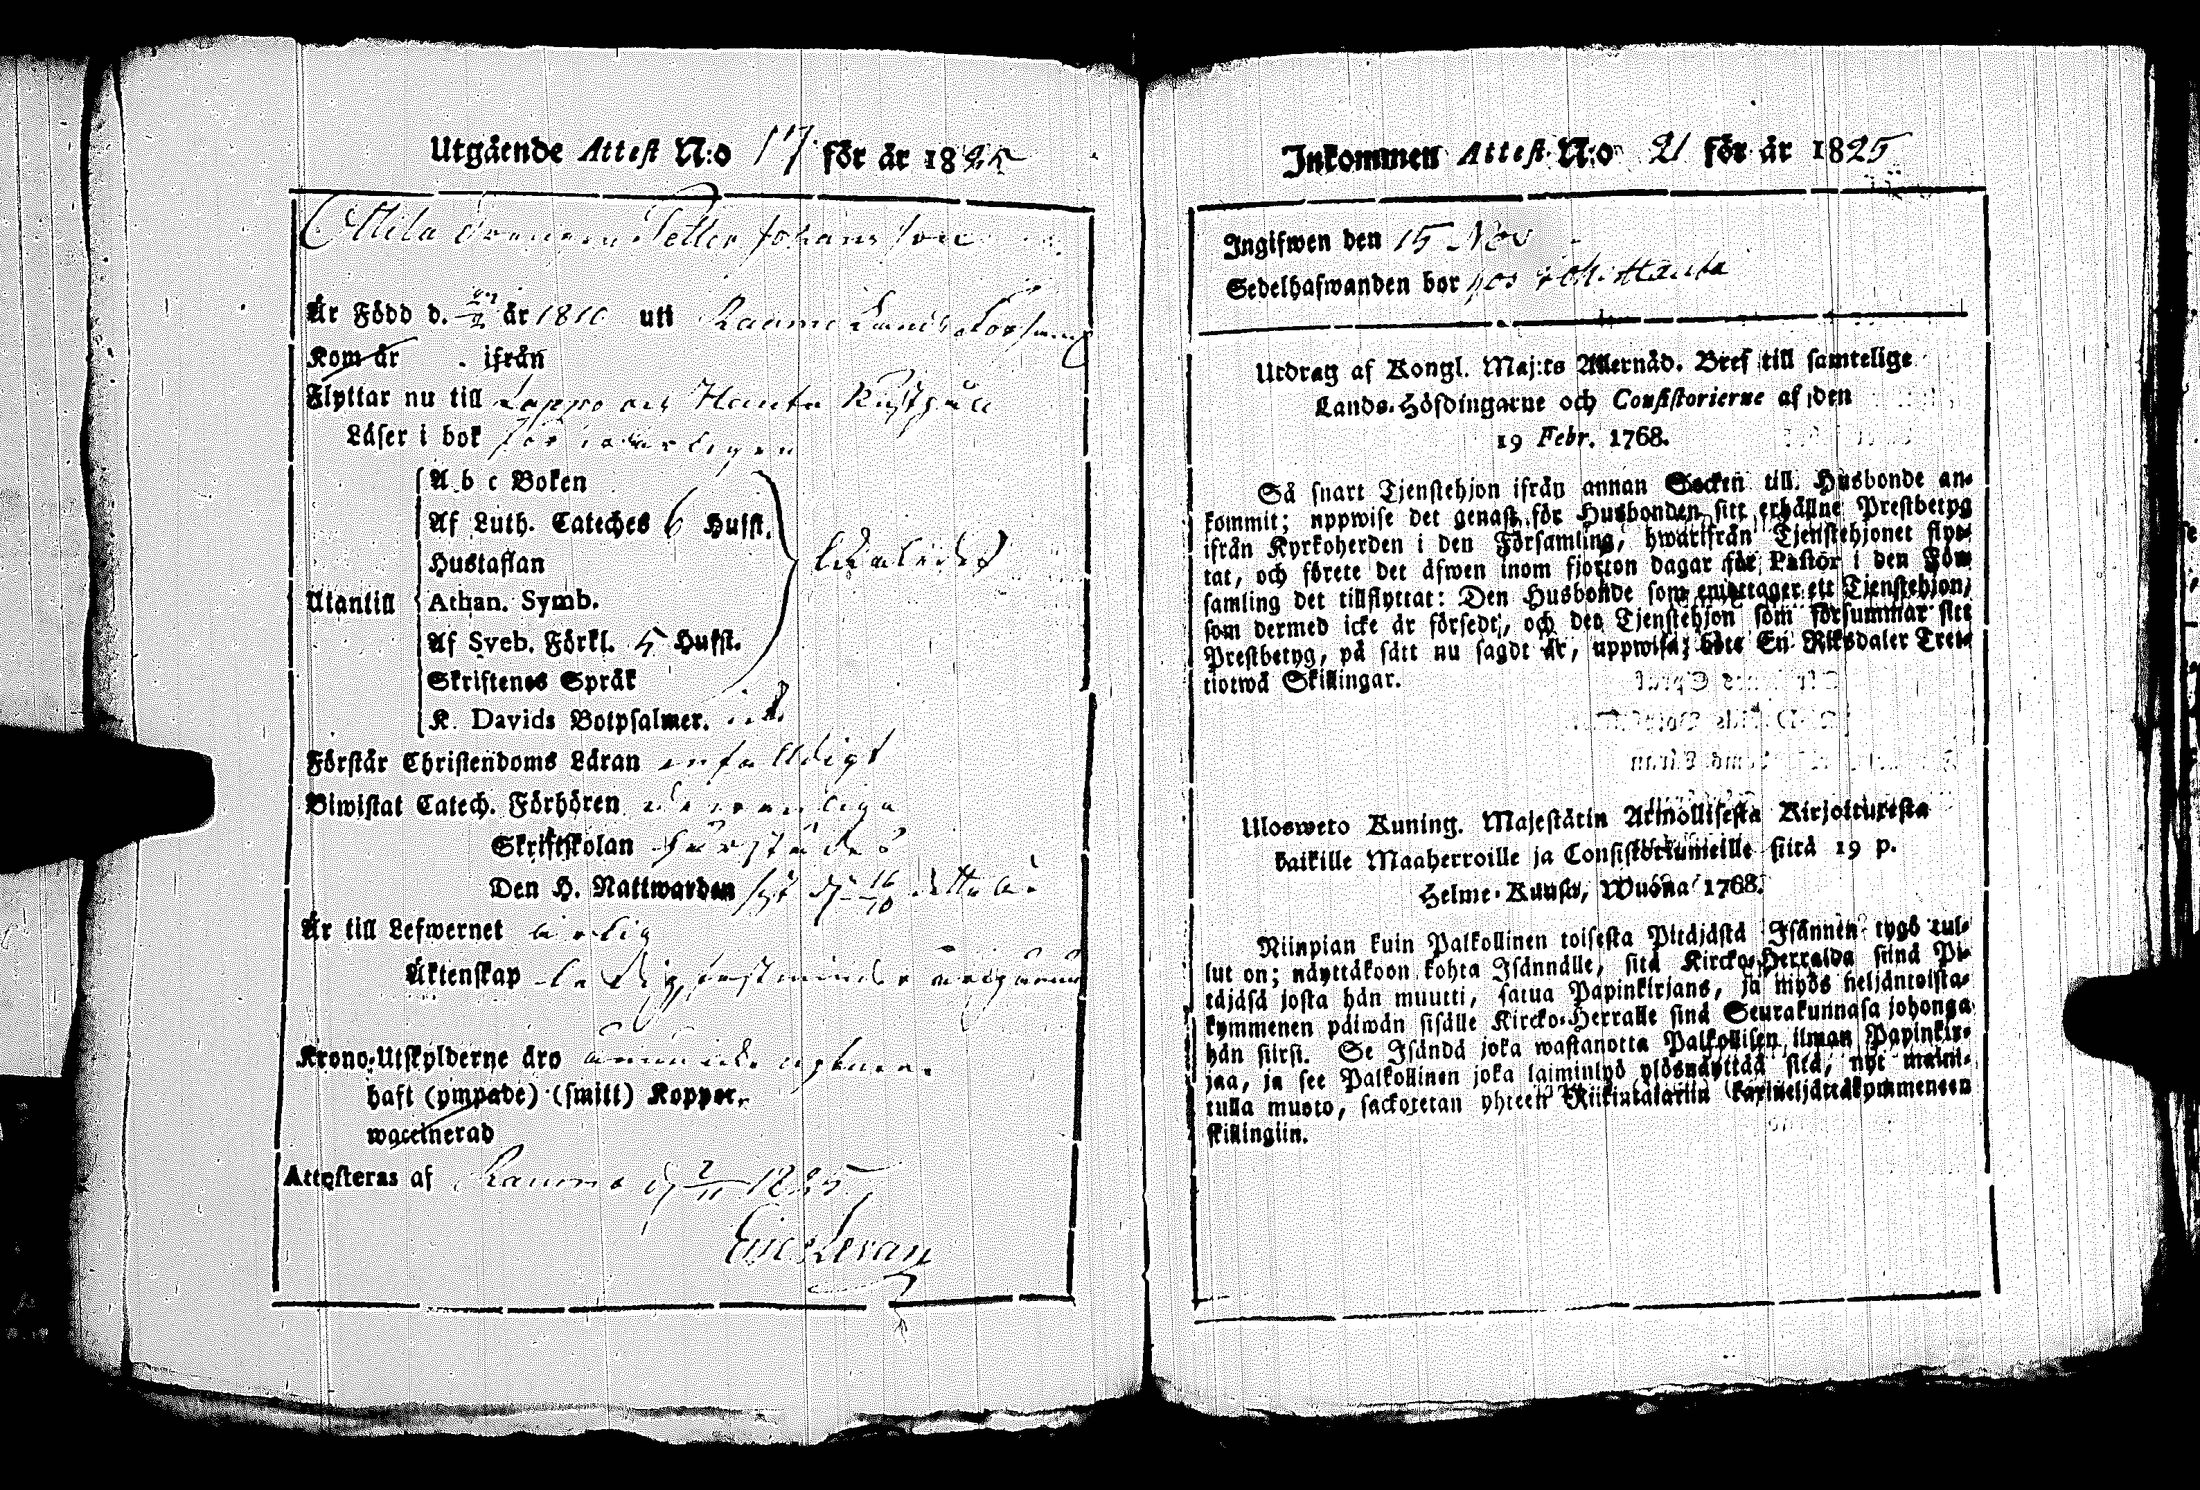 Utgående Attest N:o 117 för år 1825
Petter Johans son
Är Född d. 27/2 år 1810 uti Raumo Lands Församl
Kom år . ifrån
Flyttar nu till Lappo och Hanta Rusthåll
Läser i bok försvarligen
A b c Boken
Af Luth. Cateches 6 Hufst.
Hustaflan
Utantill Athan. Symb. likaledes
Af Sveb. Förkl. 5 Hufst.
Skriftenes Språk
K. Davids Botpsalmer. icke
Förstår Christendoms Läran enfaldigt
Biwistat Catech. Förhören
Skriftskolan
Den H. Nattwarden sist d. 16/10 detta år
Är till Lefwernet ärlig
Äktenskap ledig
Krono-Utskylderne äro ännu icke
haft (ympade) (smitt) Koppor.
waccinerad
Attesteras af Raumo d. 2/11 1825
Inkommen Attest N:o 21 för år 1825
Ingifwen den 15 Nov
Sedelhafwanden bor hos Hanta
Utdrag af Kongl. Maj:ts Allernåd. Bref till samtelige
Lands-Höfdingarne och Consistorierne af den
19 Febr. 1768.
Så snart Tjenstehjon ifrån annan Socken till Husbonde an-
kommit; uppwise det genast för Husbonden sitt erhållne Prestbetyg
ifrån Kyrkoherden i den Församling, hwarifrån Tjenstehjonet flyt-
tat, och förete det äfwen inom fjorton dagar för Pastor i den För-
samling det tillflyttat: Den Husbonde som emottager ett Tjenstehjon,
som dermed icke är försedt, och det Tjenstehjon som försummar sitt
Prestbetyg, på sätt nu sagdt är, uppwisa; böte En Riksdaler Tret-
tiotwå Skillingar.
Ulosweto Kuning. Majestätin Armollisesta Kirjoituresta
kaikille Maaherroille ja Consistoriumeille siitä 19 p.
Helme-Kuusa, Wuona 1768.
Niinpian kuin Palkollinen toisesta Pitäjästä Isännen tygö tul-
lut on; näyttäkoon kohta Isännälle, sitä Kircko-Herralda siinä Pi-
täjäsä josta hän muutti, saatua Papinkirjans, ja myös neljäntoista-
kymmenen päiwän sisälle Kircko-Herralle siinä Seurakunnasa johonga
hän siirsi. Se Isändä joka wastanotta Palkollisen ilman Papinkir-
jaa, ja see Palkollinen joka laiminlyö ylösnäyttää sitä, nyt maini-
tulla muoto, sackotetan yhteen Riikintalariin kaxineljättäkymmeneen
skillingiin.